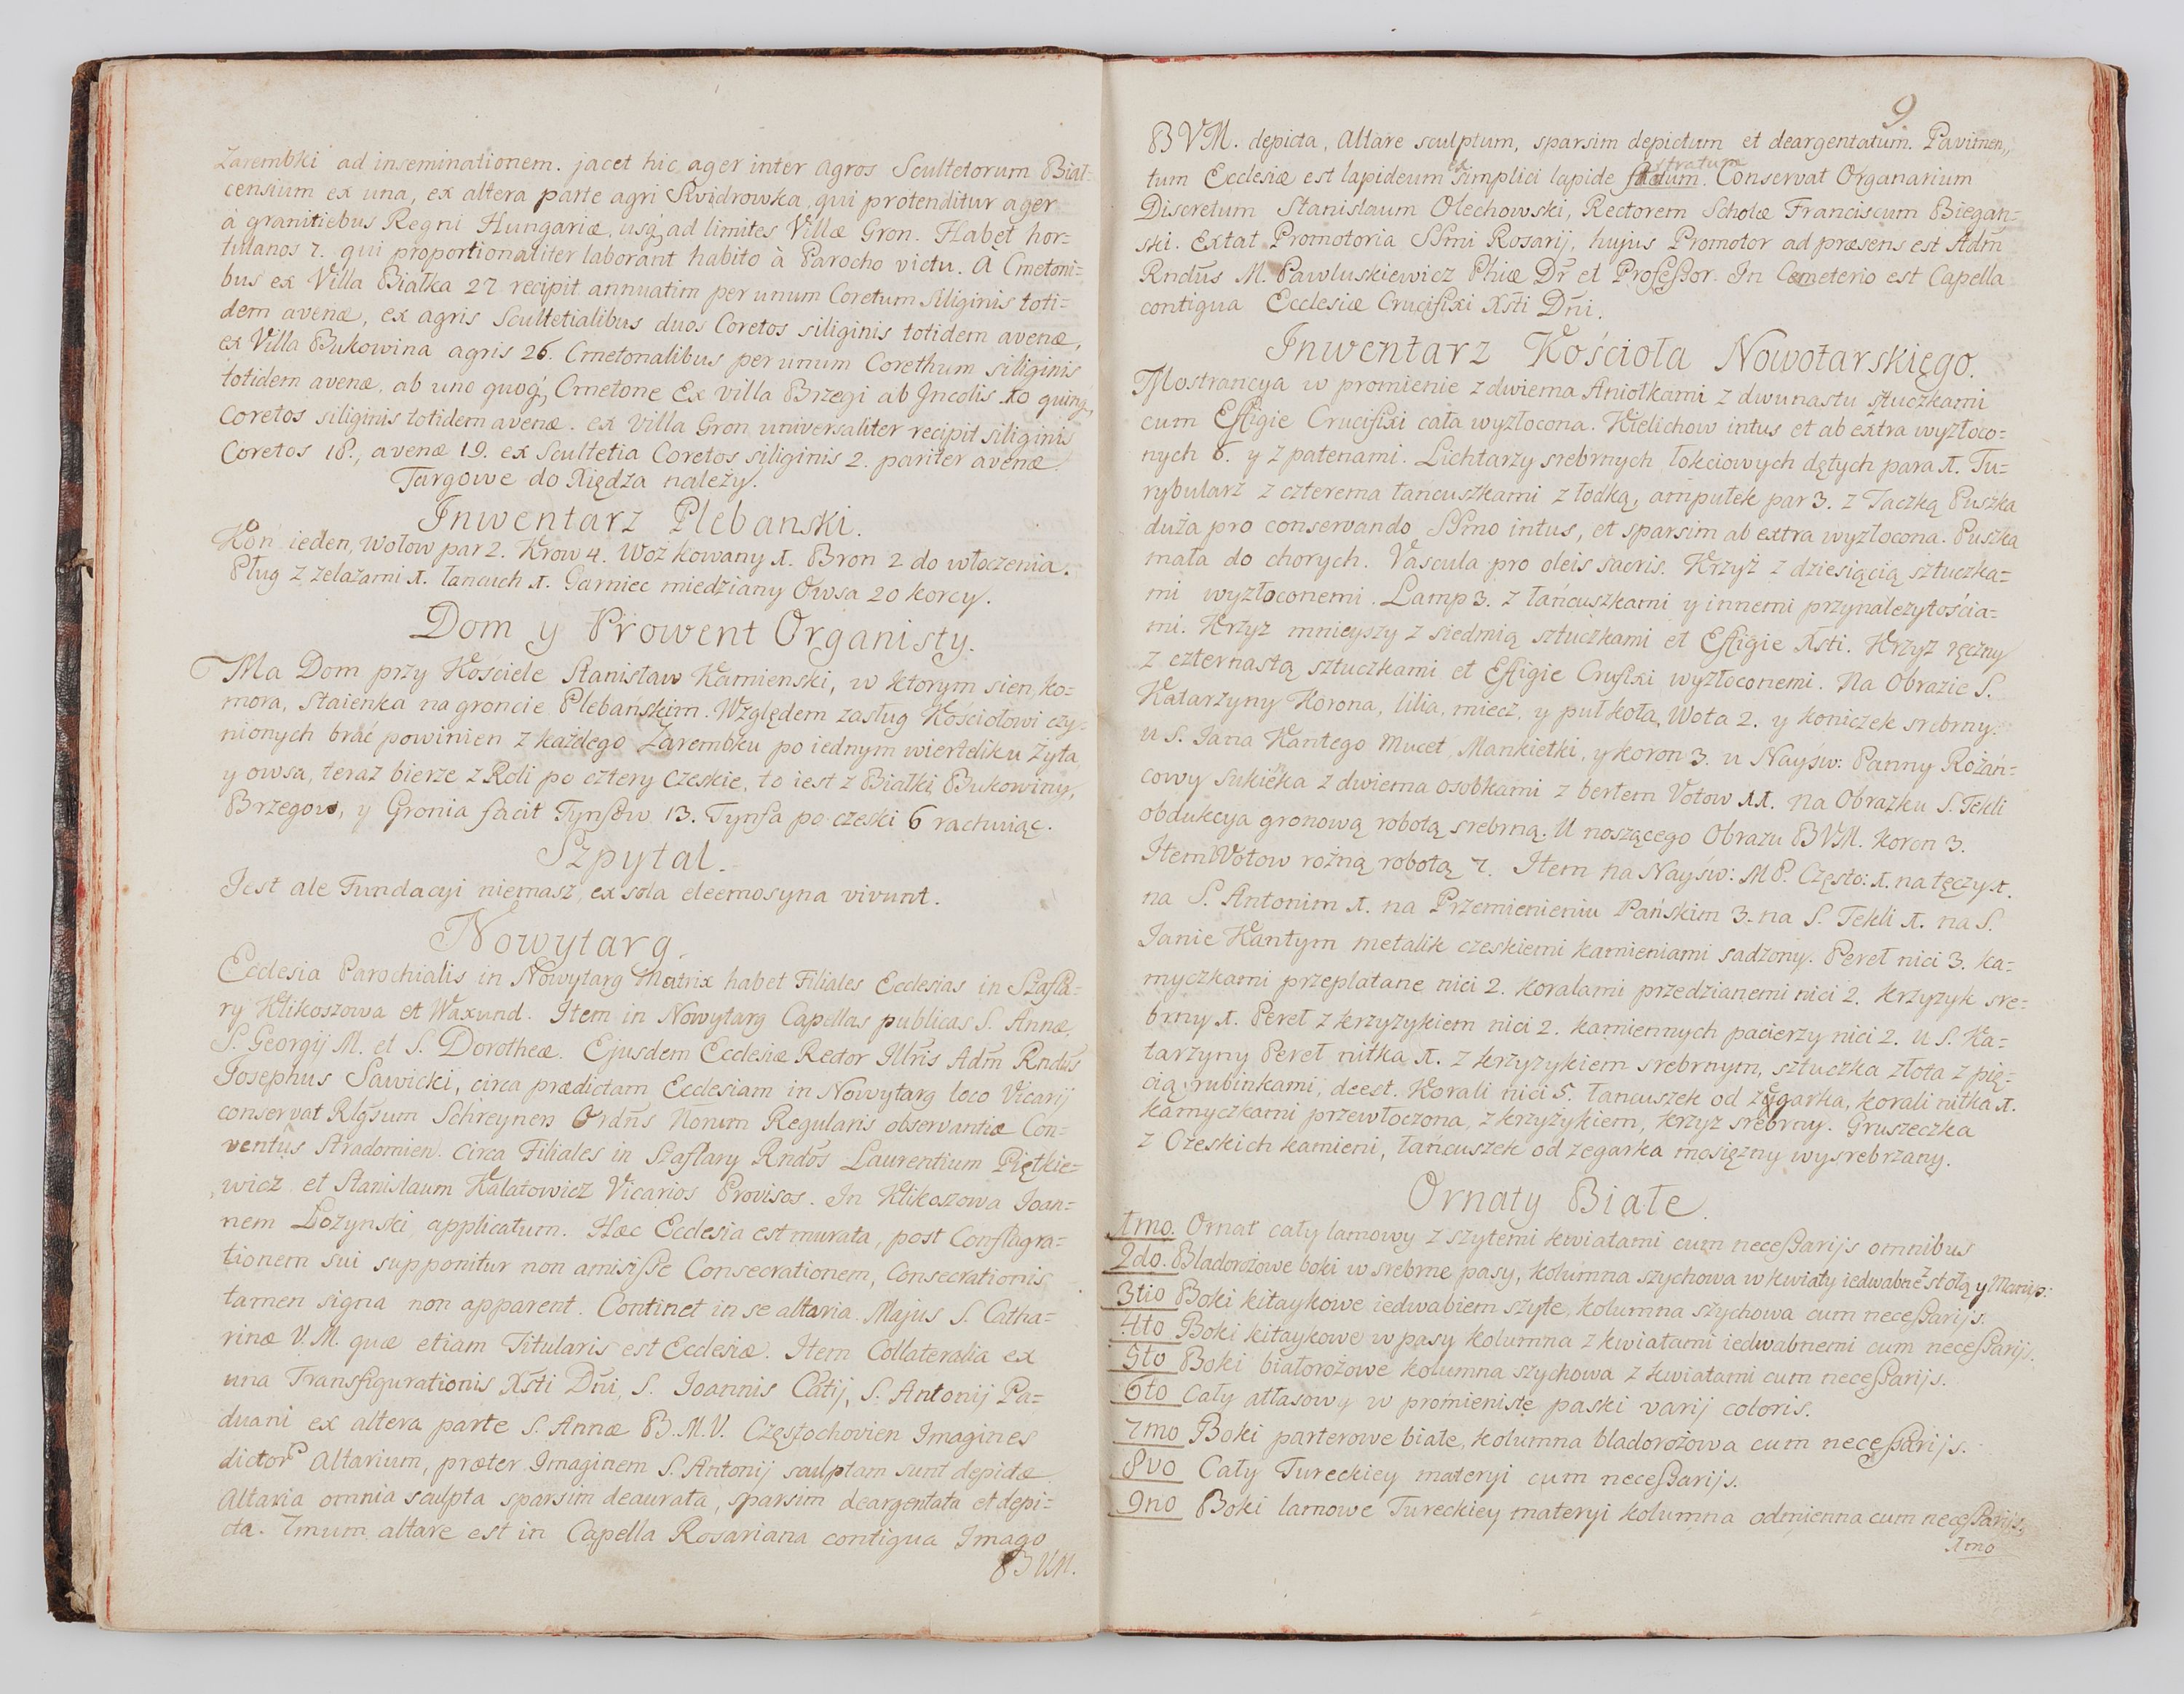 Zarembki ad inseminationem. jacet hic ager inter agros Scultetorum Biał=
censium ex una, ex altera parte agri Kwidrowka, qui protenditur ager
à granitiebus Regni Hungariæ, usq, ad limites Villæ Gron. Habet hor=
tulanos 7. qui proportionaliter laborant habito à Parocho victu. A Cmetoni=
bus ex Villa Białka 27 recipit annuatim per unum Coretum siliginis toti=
dem avenæ, ex agris Scultetialibus duos Coretos siliginis totidem avenæ,
ex Villa Bukowina agris 26. Cmetonalibus per unum Corethum siliginis
totidem avenæ, ab uno quoq, Cmetone Ex villa Brzegi ab Incolis 10 quinq,
Coretos siliginis totidem avenæ. ex Villa Gron universaliter recipit siliginis
Coretos 18., avenæ 19. ex Scultetia Coretos siliginis 2. pariter avenæ.
Targowe do Xiędza należy.
Inwentarz Plebanski.
Koń ieden, Wołow par 2. Krow 4. Woz kowany 1. Bron 2 do włoczenia.
Pług z żelazami 1. łancuch 1. Garniec miedziany Owsa 20 korcy.
Dom y Prowent Organisty.
Ma Dom przy Kościele Stanisław Kamienski, w ktorym sien, ko=
mora, Staienka na groncie Plebanskim. Względem zasług Kościołowi czy=
nionych brać powinien z każdego Zarembku po iednym wierteliku żyta,
y owsa, teraz bierze z Roli po cztery Czeskie, to iest z Białki, Bukowiny,
Brzegow, y Gronia facit Tynfow 13. Tynfa po czeski 6 rachuiąc.
Szpytal.
Jest ale Fundacyi niemasz, ex sola eleemosyna vivunt.
Nowytarg.
Ecclesia Parochialis in Nowytarg Matrix habet Filiales Ecclesias in Szafla=
ry Klikoszowa et Waxund. Item in Nowytarg Capellas publicas S. Annæ,
S. Georgij M. et S. Dorotheæ. Ejusdem Ecclesiæ Rector Illris Adm Rndus
Josephus Sawicki, circa prædictam Ecclesiam in Nowytarg loco Vicarij
conservat Rlgsum Schreynen Ordns Norum Regularis observantiæ Con=
ventûs Stradomien. Circa Filiales in Szaflary Rndos Laurentium Piętkie=
wicz et Stanislaum Kalatowicz Vicarios Provisos. In Klikoszowa Joan=
nem Łozynski applicatum. Hæc Ecclesia est murata, post Conflagra=
tionem sui supponitur non amisisse Consecrationem, Consecrationis
tamen signa non apparent. Continet in se altaria. Majus S. Catha=
rinæ V. M. quæ etiam Titularis est Ecclesiæ. Item Collateralia ex
una Transfigurationis Xsti Dni, S. Joannis Catij, S. Antonij Pa=
duani ex altera parte S. Annæ B. M. V. Częstochovien Imagines
dictor Altarium, præter Imaginem S. Antonij sculptam sunt depictæ.
Altaria omnia sculpta sparsim deaurata, sparsim deargentata et depi=
cta. 7mum altare est in Capella Rosariana contigua Imago
BVM.
9.
BVM. depicta, Altare sculptum, sparsim depictum et deargentatum. Pavimen,,
tum Ecclesiæ est lapideum ex simplici lapide factum stratum. Conservat Organarium
Discretum Stanislaum Olechowski, Rectorem Scholæ Franciscum Biegan=
ski. Extat Promotoria SSmi Rosarij, hujus Promotor ad præsens est Adm
Rndus M. Pawluskiewicz Phiæ Dr et Professor. In Cæmeterio est Capella
contigua Ecclesiæ Crucifixi Xsti Dni.
Inwentarz Kościoła Nowotarskięgo.
Mostrancya w promienie z dwiema Aniołkami z dwunastu sztuczkami
cum Effigie Crucifixi cała wyzłocona. Kielichow intus et ab extra wyzłoco=
nych 6. y z patenami. Lichtarzy srebrnych łokciowych dętych para 1. Tu=
rybularz z czterema łancuszkami z łodką, ampułek par 3. z Taczką Puszka
duża pro conservando SSmo intus, et sparsim ab extra wyzłocona. Puszka
mała do chorych. Vascula pro oleis sacris. Krzyż z dziesiącią sztuczka=
mi wyzłoconemi. Lamp 3. z łańcuszkami y innemi przynależytościa=
mi. Krzyz mnieyszy z siedmią sztuczkami et Effigie Xsti. Krzyz ręczny
z czternastą sztuczkami et Effigie Crufixi wyzłoconemi. Na Obrazie S.
Katarzyny Korona, lilia, miecz, y puł koła, Wota 2. y koniczek srebrny.
u S. Jana Kantego Mucet, Mankietki, y koron 3. u Nayśw: Panny Rożań=
cowy sukieńka z dwiema osobkami z berłem Votow 11. na Obrazku S. Tekli
obdukcya gronową robotą srebrną. U noszącego Obrazu BVM. koron 3.
Item Wotow rożną robotą 7. Item na Nayśw: MP. Często: 1. na tęczy 1.
na S. Antonim 1. na Przemienieniu Pańskim 3. na S. Tekli 1. na S.
Janie Kantym metalik czeskiemi kamieniami sadzony. Pereł nici 3. ka=
myczkami przeplatane nici 2. koralami przedzianemi nici 2. krzyzyk sre=
brny 1. Pereł z krzyzykiem nici 2. kamiennych pacierzy nici 2. u S. Ka=
tarzyny Pereł nitka 1. z krzyzykiem srebrnym, sztuczka złota z pię=
cią rubinkami, deest. Korali nici 5. łancuszek od zygarka, korali nitka 1.
kamyczkami przewłoczona, z krzyżykiem, krzyz srebrny. Gruszeczka
z Czeskich kamieni, łańcuszek od zegarka mosiężny wysrebrzany.
Ornaty Białe.
1mo. Ornat cały lamowy z szytemi kwiatami cum necessarijs omnibus
2do. Bladorożowe boki w srebrne pasy, kolumna szychowa w kwiaty iedwabne z stołą y Manip:
3tio Boki kitaykowe iedwabiem szyte, kolumna szychowa cum necessarijs.
4to Boki kitaykowe w pasy kolumna z kwiatami iedwabnemi cum necessarijs.
5to Boki białorożowe kolumna szychowa z kwiatami cum necessarijs.
6to Cały atłasowy w promieniste paski varij coloris.
7mo Boki parterowe białe, kolumna bladorożowa cum necessarijs.
8vo Cały Tureckiey materyi cum necessarijs.
9no Boki lamowe Tureckiey materyi kolumna odmienna cum necessarijs.
1mo